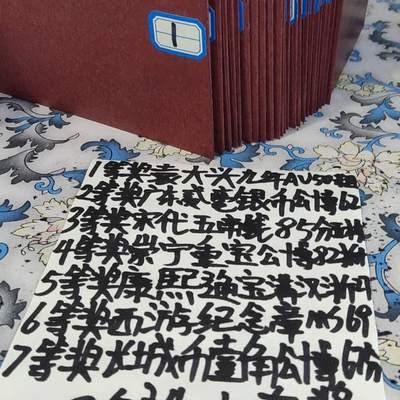 1
1等奖袁大头九年AU50
2等奖广东咸丰银币公博62
3等奖宋代五市钱85分
4等奖崇宁重宝公博82
5等奖康熙通宝满汉
6等奖西游纪念章MS69
7等奖长城币壹角公博6